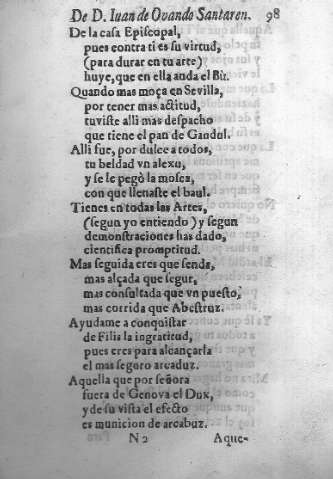 De D. Iuan de Ovando Santaren. 98
De la casa Episcopal,
pues contra ti es su virtud,
(para durar en tu arte)
huye, que en ella anda el Bù.
Quando mas moça en Sevilla,
por tener mas actitud,
tuviste alli mas despacho
que tiene el pan de Gandul.
Alli fue, por dulce a todos,
tu beldad vn alexu,
y se le pegò la mosca,
con que llenaste el baul.
Tienes en todas las Artes,
(segun yo entiendo) y segun
demonstraciones has dado,
cientifica promptitud.
Mas seguida eres que senda,
mas alçada que segur,
mas consultada que vn puesto,
mas corrida que Abestruz.
Ayudame a conquistar
de Filis la ingratitud,
pues eres para alcançarla
el mas seguro arcaduz.
Aquella que por señora
fuera de Genova el Dux,
y de su vista el efecto
es municion de arcabuz.
N 2 Aque-